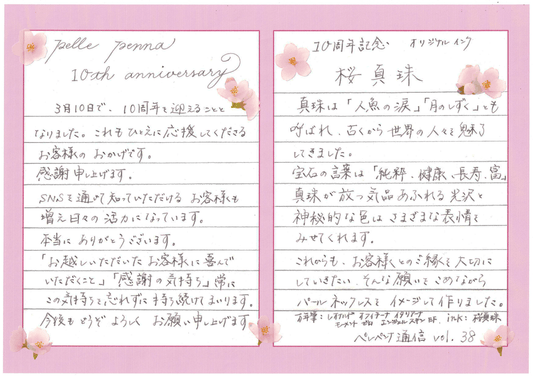 pelle penna
10th anniversary
3月10日で、10周年を迎えることと
なりました。これもひとえに応援してくださる
お客様の おかげです。
感謝申し上げます。
SNSを通じて知っていただける お客様も
増え日々の活力になっています。
本当に ありがとうございます。
「お越しいただいた お客様に喜んで
いただくこと」「感謝の気持ち」常に
この気持ちを忘れずに持ち続けてまいります。
今後も どうぞ よろしく お願い申し上げます。
10周年記念 オリジナルインク
桜真珠
真珠は「人魚の涙」「月のしずく」とも
呼ばれ、古くから世界の人々を魅了
してきました。
宝石の言葉は「純粋、健康、長寿、富」
真珠が放つ気品あふれる光沢と
神秘的な色は さまざまな表情を
みせてくれます。
これからも、お客様とのご縁を大切に
していきたい、そんな願いをこめながら
パールネックレスを イメージして作りました。
万年筆: レオナルド オフィチーナ イタリアーナ
モーメント ゼロ EF. ink: 桜真珠
ペレペンナ通信 vol. 38